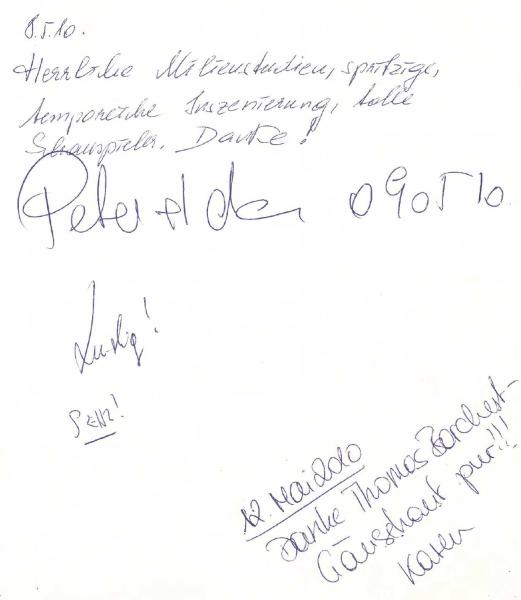 8.5.10.
Herrliche Milieustudien, spritzige,
temporeiche Inszenierung, tolle
Schauspieler. Danke!
Peter 090510
Lustig!
Sehr!
12. Mai 2010
Danke Thomas Borchert -
Gänsehaut pur!!!
Karen